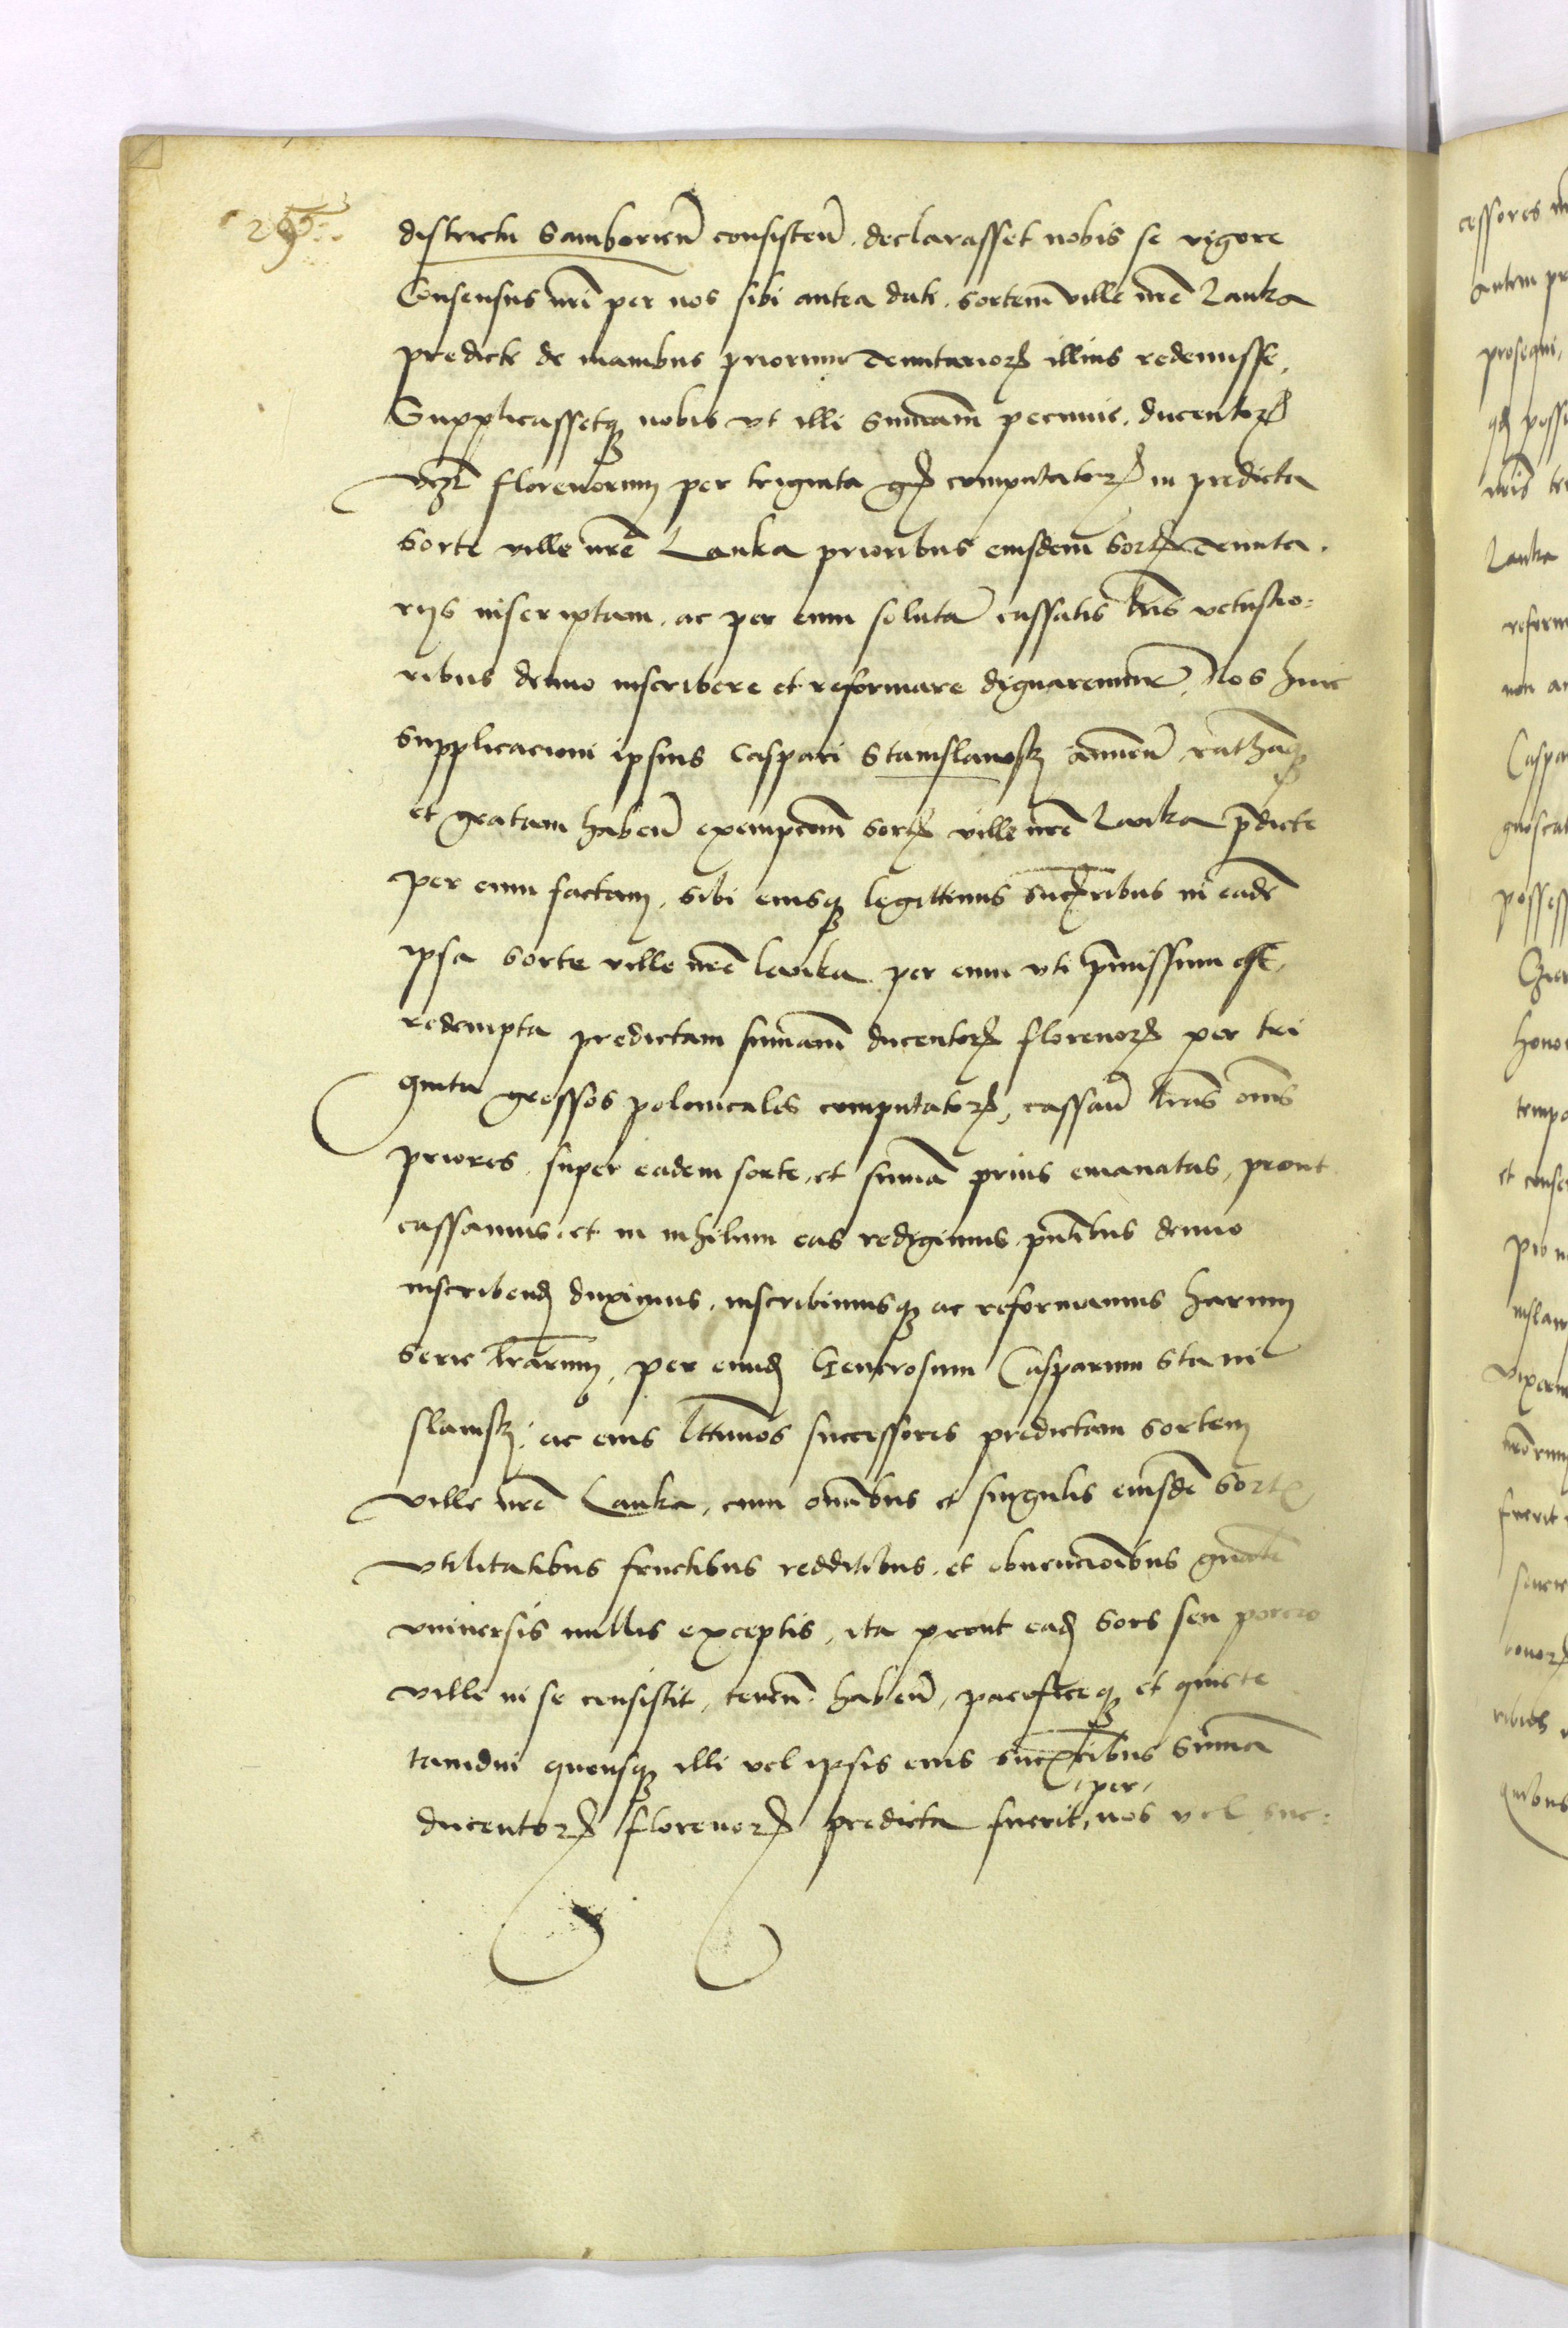 districtu Samborien̄ consisten̄. declarasset nobis se vigore
Consensus nr̄i per nos sibi antea dati. sortem ville nr̄e Lanka
predicte de manibus priorum tenutarioꝝ illius redemisse,
Supplicassetqꝫ nobis vt illi sum̄am pecunie. ducentoꝝ
vcꝫt florenorum per triginta gꝝ computatoꝝ in predicta
sorte ville nr̄e Lanka prioribus eiusdem sortꝭ tenuta.
rijs inscriptam. ac per eum solutā cassatis lr̄is vetustio=
ribus denuo inscribere et reformare dignaremur. Nos huic
supplicacioni ipsius Caspari Stanislawsky annuen̄ rathāqꝫ
et gratam haben̄ exempcionem̄ sortꝭ ville nr̄e Lanka p̄dicte
per eum factam, sibi eiusqꝫ legittimis succꝝribus in eadē
ipsa sorte ville nr̄e Lanka per eum vti p̄missum est,
redempta predictam sum̄am ducentoꝝ florenoꝝ per tri
ginta grossos polonicales computatoꝝ, cassan̄ lr̄as om̄s
priores, super eadem sorte, et sum̄a prius emanatas, prout
cassamus. et in nihilum eas redigimus pn̄tibus denuo
inscribendꝫ duximus. inscribimusqꝫ ac reformamus harum
serie lr̄arum, per eundꝫ Generosum Casparum Stani
slawskꝫ. ac eius lt̄timos successores predictam sortem
ville nr̄e Lanka, cum om̄ibus et singulis eiusdē sortꝭ
vtilitatibus fructibus redditibus. et obuencio̅ibus gn̄alit̄
vniuersis nullis exceptis, ita prout eadꝫ sors seu porcio
ville in se consistit, tenen̄. haben̄, pacificeqꝫ et quiete
tamdiu quousqꝫ illi vel ipsis eius succꝝribus sum̄a
per
ducentoꝝ florenoꝝ predicta fuerit, nos vel suc=